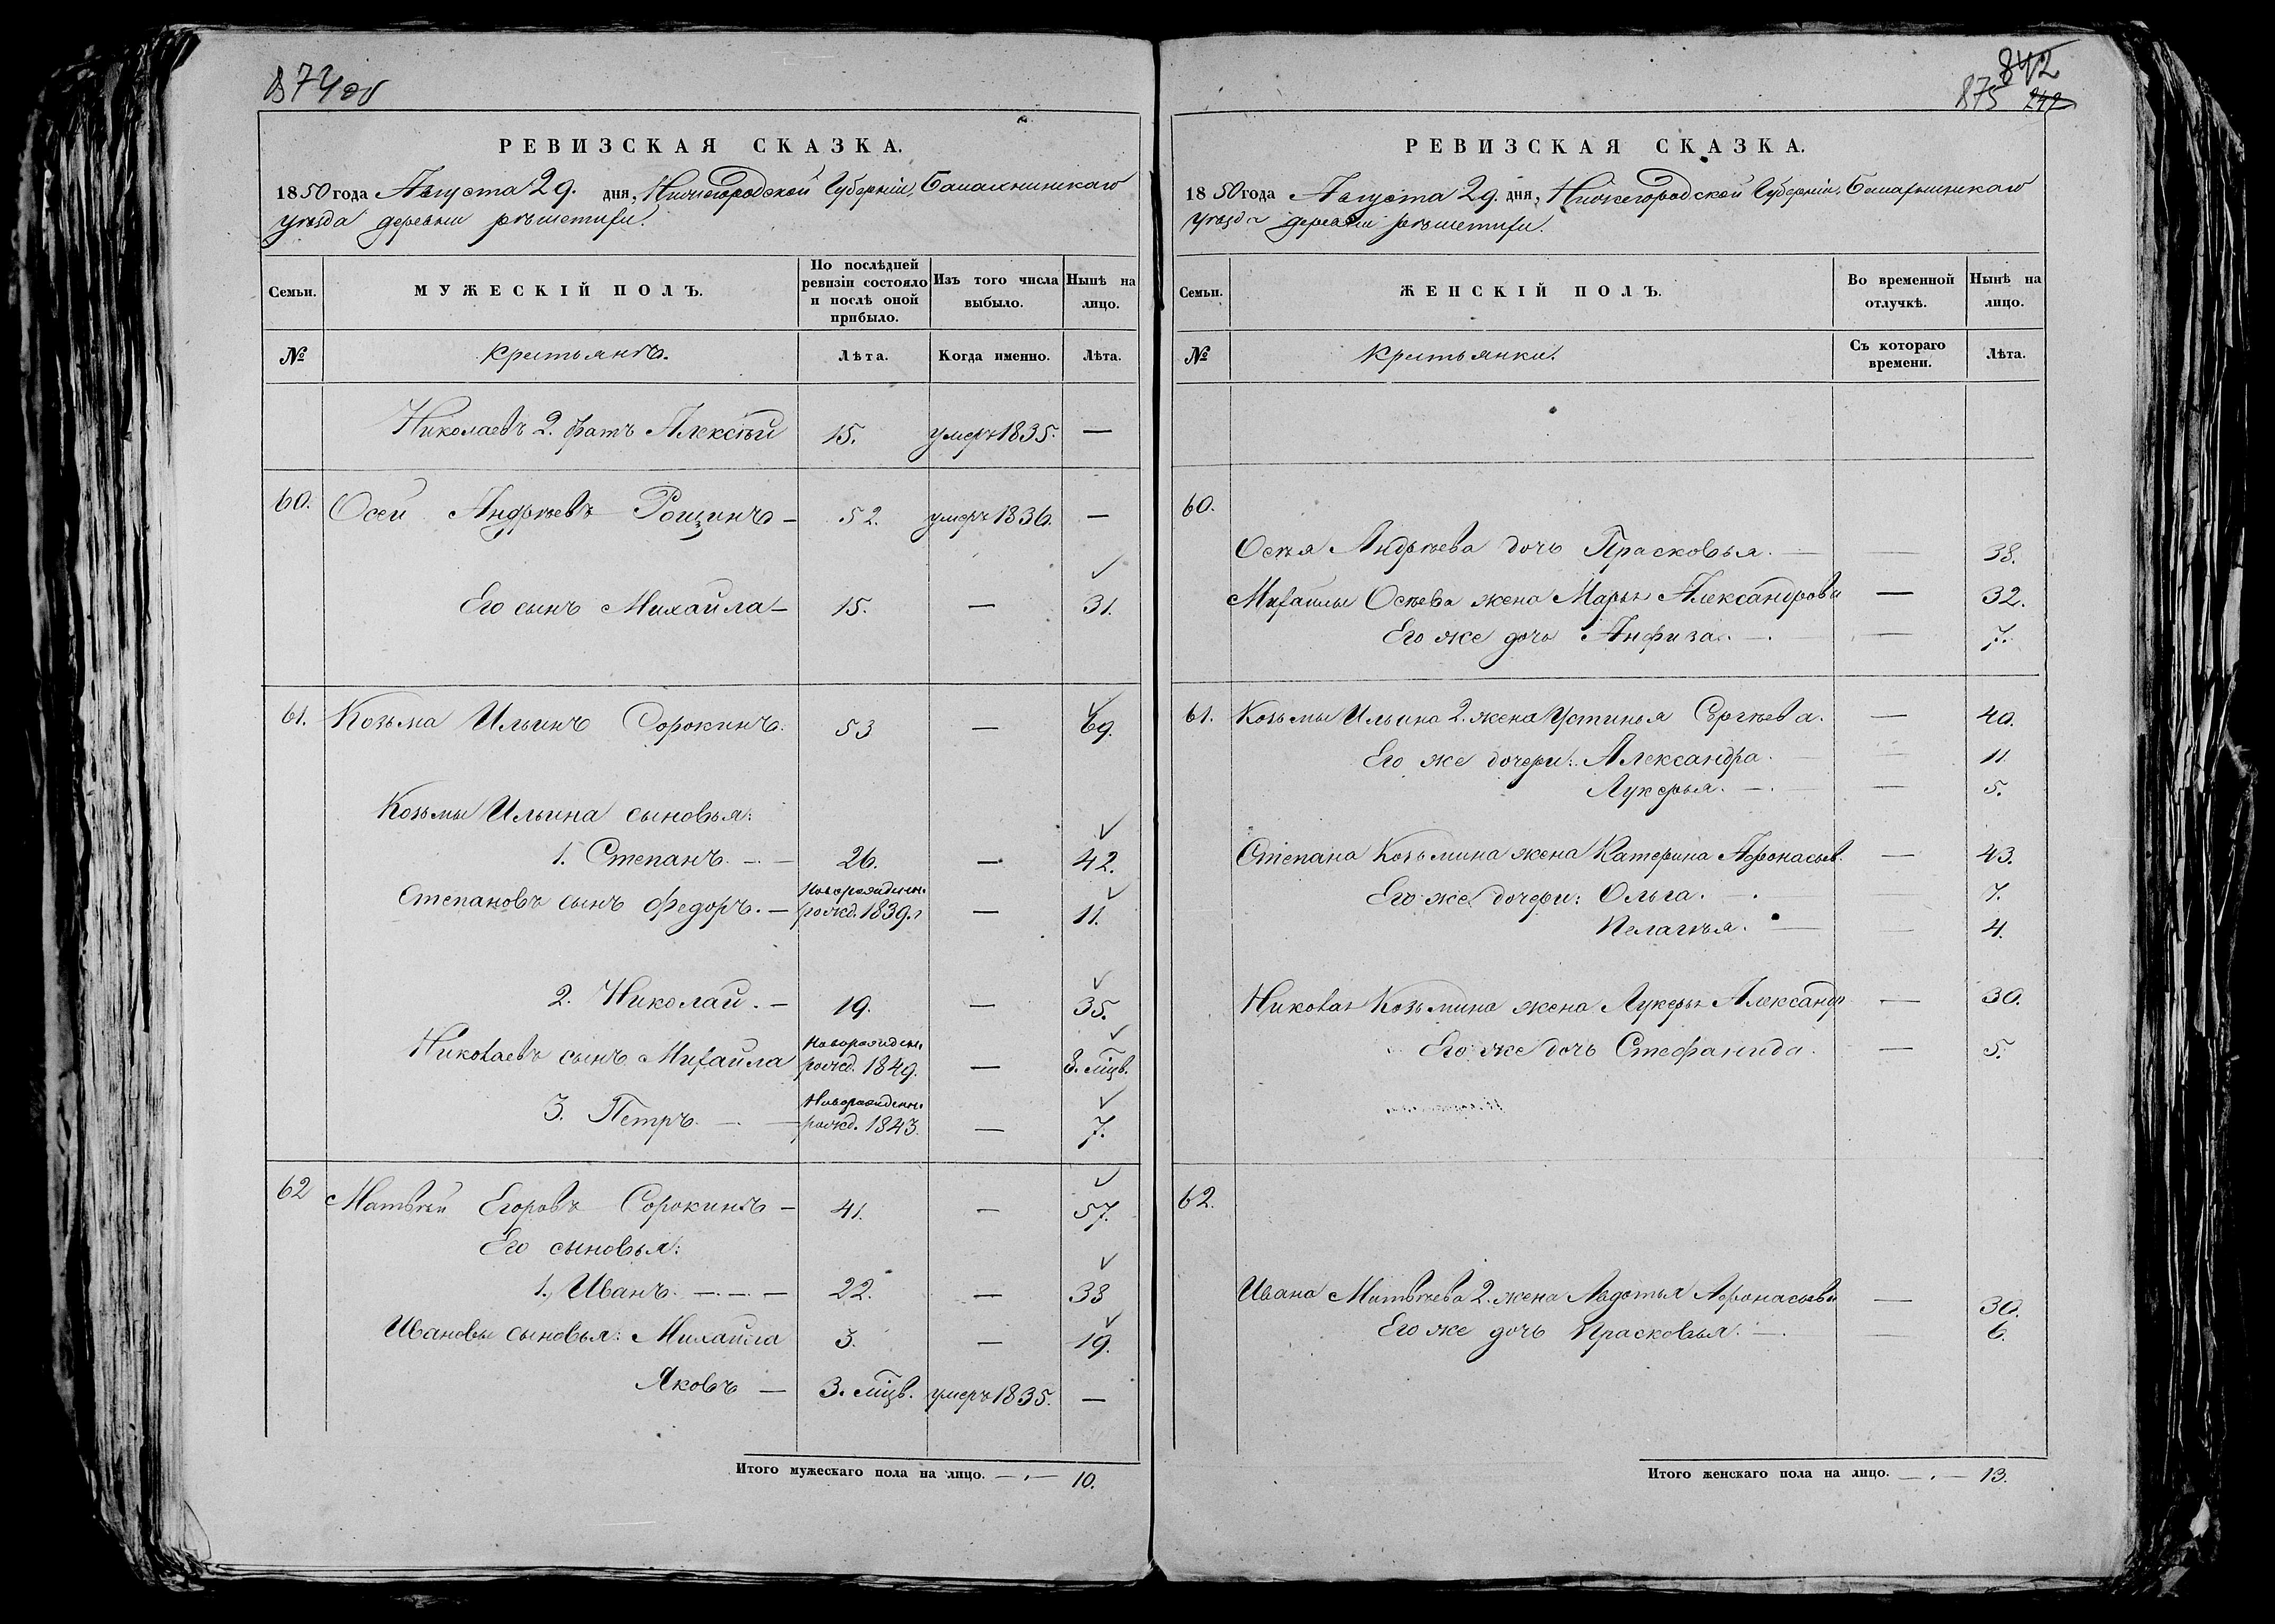 874 об
РЕВИЗСКАЯ СКАЗКА.
1850 года Августа 29. дня, Нижегородской Губерніи, Балахнинскаго
уѣзда деревни рѣшетихи.
Семьи. МУЖЕСКІЙ ПОЛЪ. По послѣдней ревизіи состояло и послѣ оной прибыло. Изъ того числа выбыло. Нынѣ на лицо.
№ Крестьянъ. Лѣта. Когда именно. Лѣта.
Николаевъ 2. братъ Алексѣй 15. умеръ 1835. —
60. Осей Андрѣевъ Рощинъ — 52. умеръ 1836. —
Его сынъ Михайла — 15. — 31.
61. Козьма Ильинъ Сорокинъ. 53 — 69.
Козьмы Ильина сыновья:
1. Степанъ. — 26. — 42.
Степановъ сынъ Федоръ. — Новорожденн. рожд. 1839. г — 11.
2. Николай. — 19. — 35.
Николаевъ сынъ Михайла Новорожден. рожд. 1849. — 8. мцв.
3. Петръ. — Новорожденн. рожд. 1843. — 7.
62 Матвѣй Егоровъ Сорокинъ — 41. — 57.
Его сыновья:
1. Иванъ. — — — 22. — 38
Ивановы сыновья: Михайла 3. — 19.
Яковъ — 3. мцв. умеръ 1835. —
Итого мужескаго пола на лицо. — 10.
842
875 242
РЕВИЗСКАЯ СКАЗКА.
1850 года Августа 29. дня, Нижегородской Губерніи, Балахнинскаго
уѣзда деревни рѣшетихи.
Семьи. ЖЕНСКІЙ ПОЛЪ. Во временной отлучкѣ. Нынѣ на лицо.
№ Крестьянки. Съ котораго времени. Лѣта.
60.
Осѣя Андрѣева дочь Прасковья. — — 38.
Михайлы Осѣева жена Марья Александрова — 32.
Его же дочь Анфиза. — — 7.
61. Козьмы Ильина 2. жена Устинья Сергѣева. — 40.
Его же дочери: Александра. — — 11.
Лукерья. — — 5.
Степана Козьмина жена Катерина Афонасьев. — 43.
Его же дочери: Ольга. — — 7.
Пелагѣя. — — 4.
Николая Козьмина жена Лукерья Александр — 30.
Его же дочь Стефанида. — 5.
62.
Ивана Матвѣева 2. жена Авдотья Афонасьева — 30.
Его же дочь Прасковья. — — 6.
Итого женскаго пола на лицо. — 13.